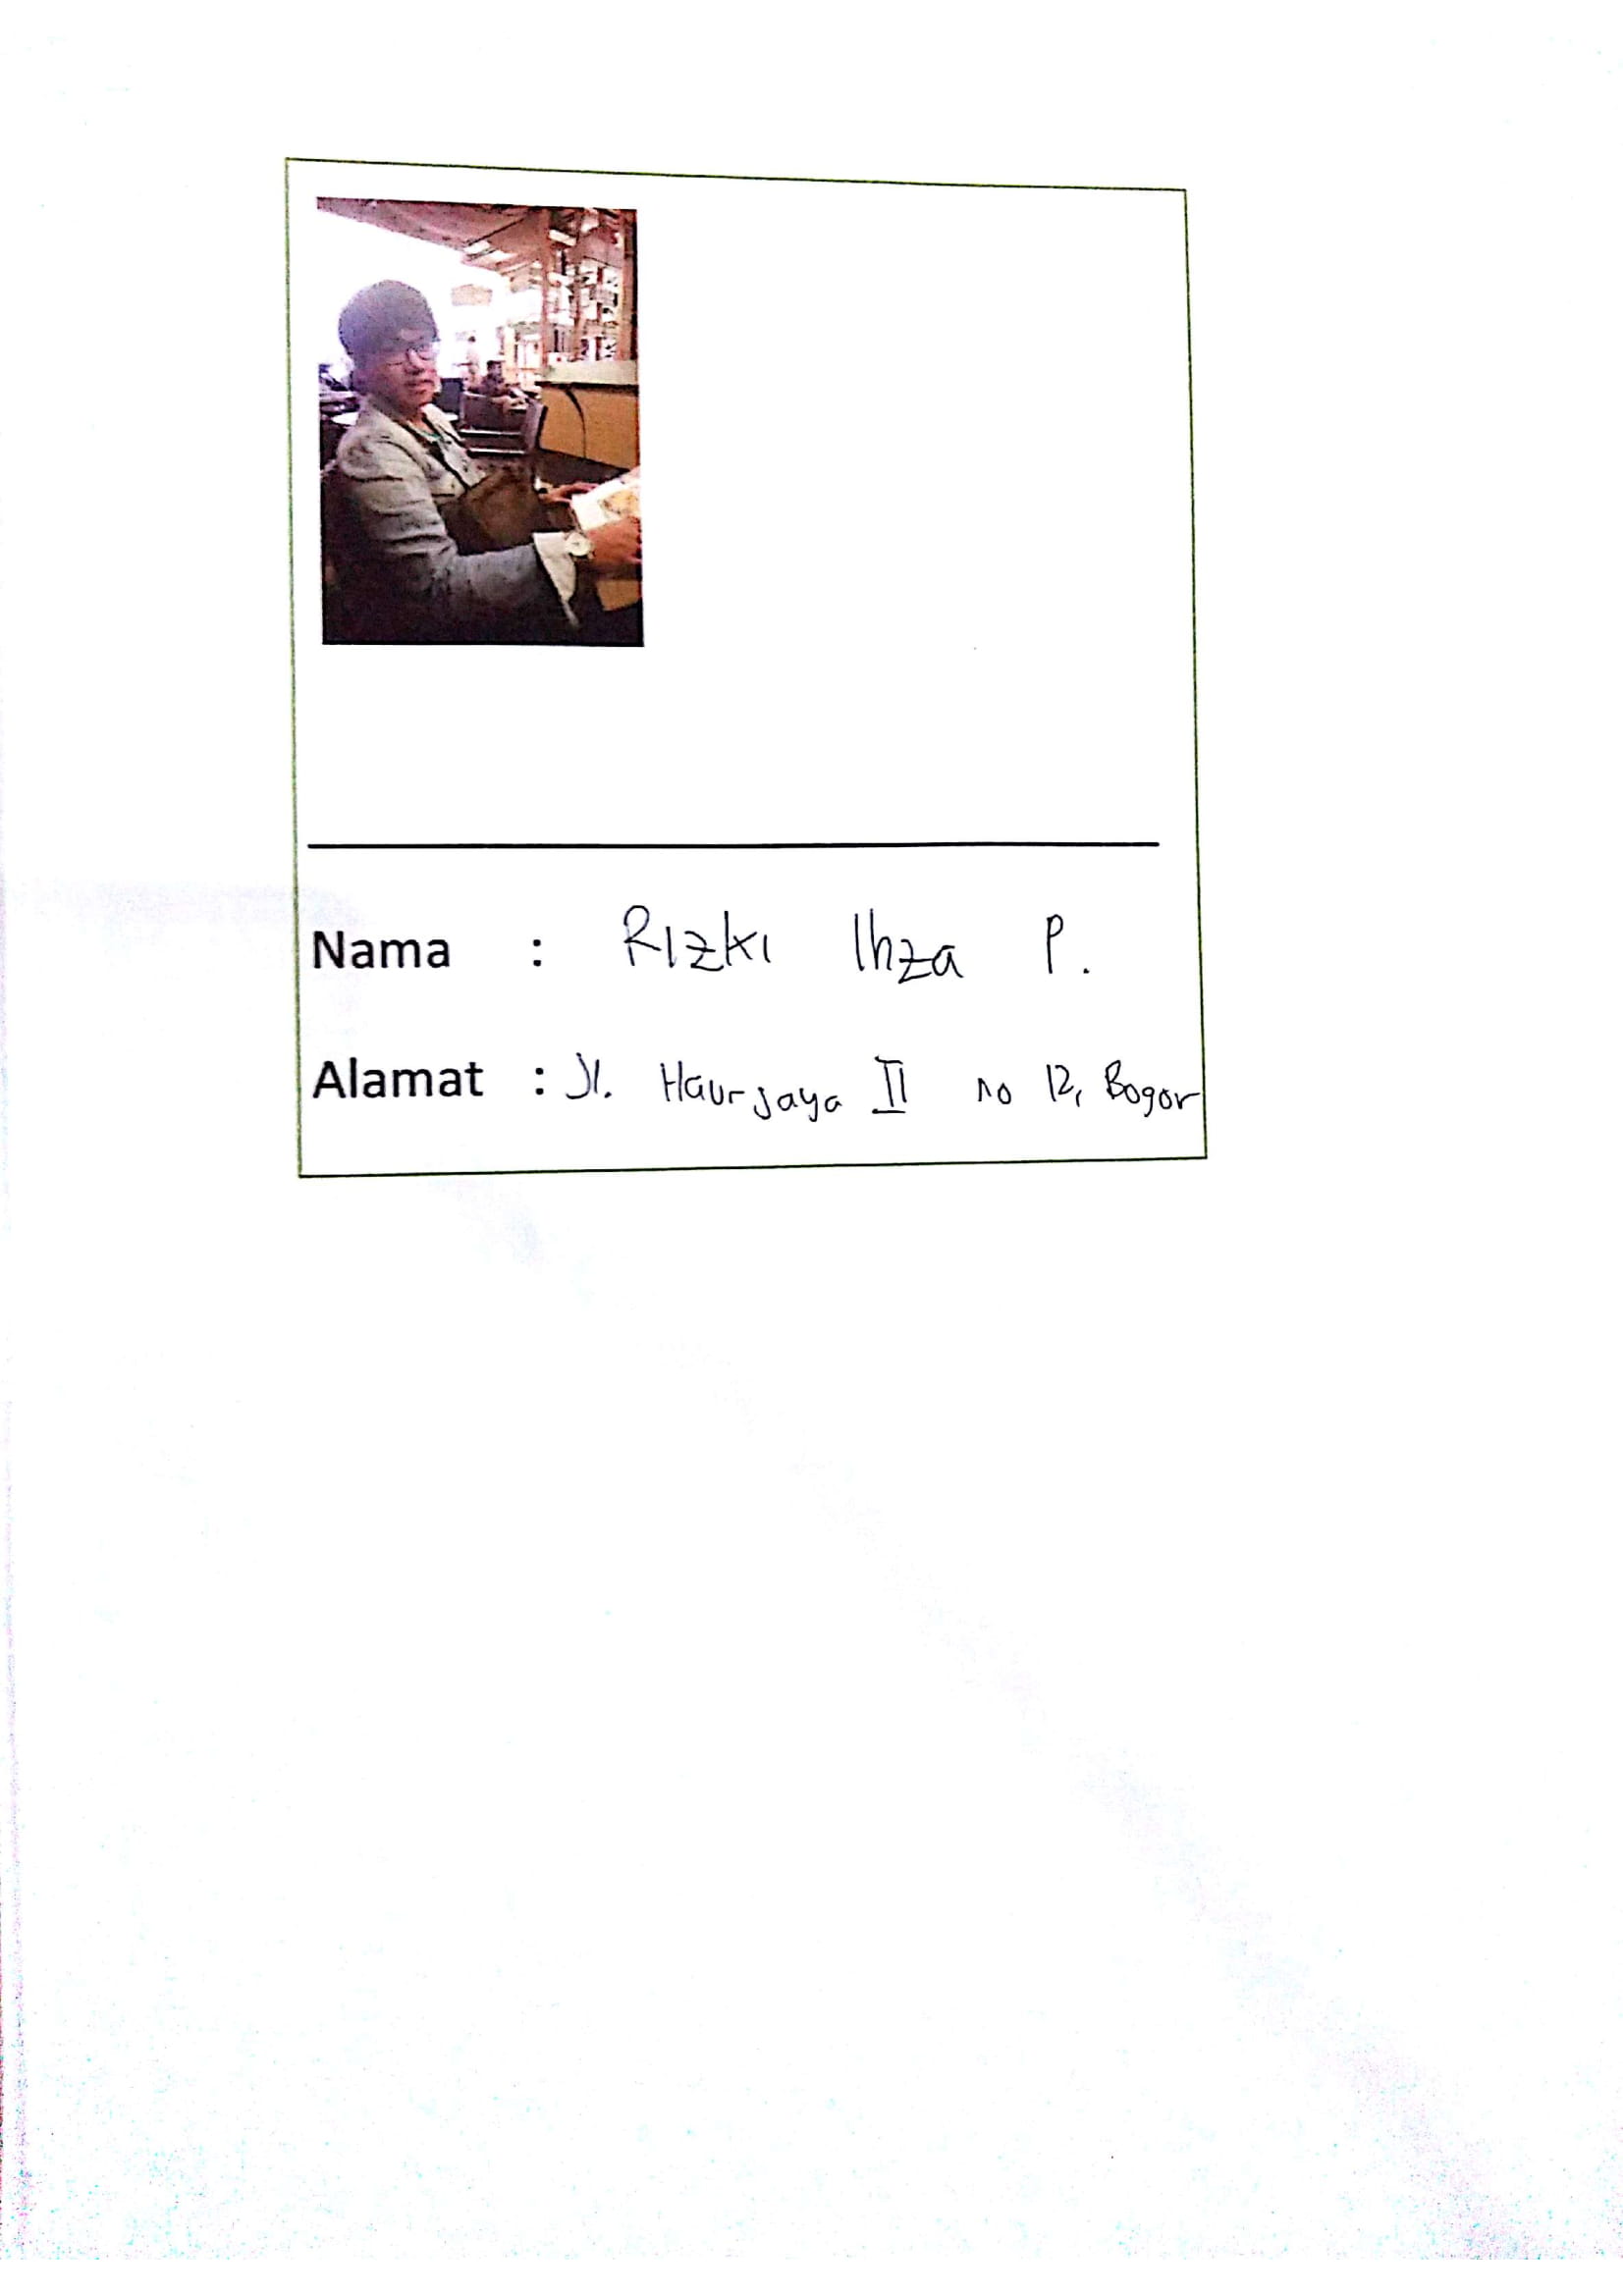 Nama : Rizki Ihza P.
Alamat : Jl. Haurjaya II no 12, Bogor